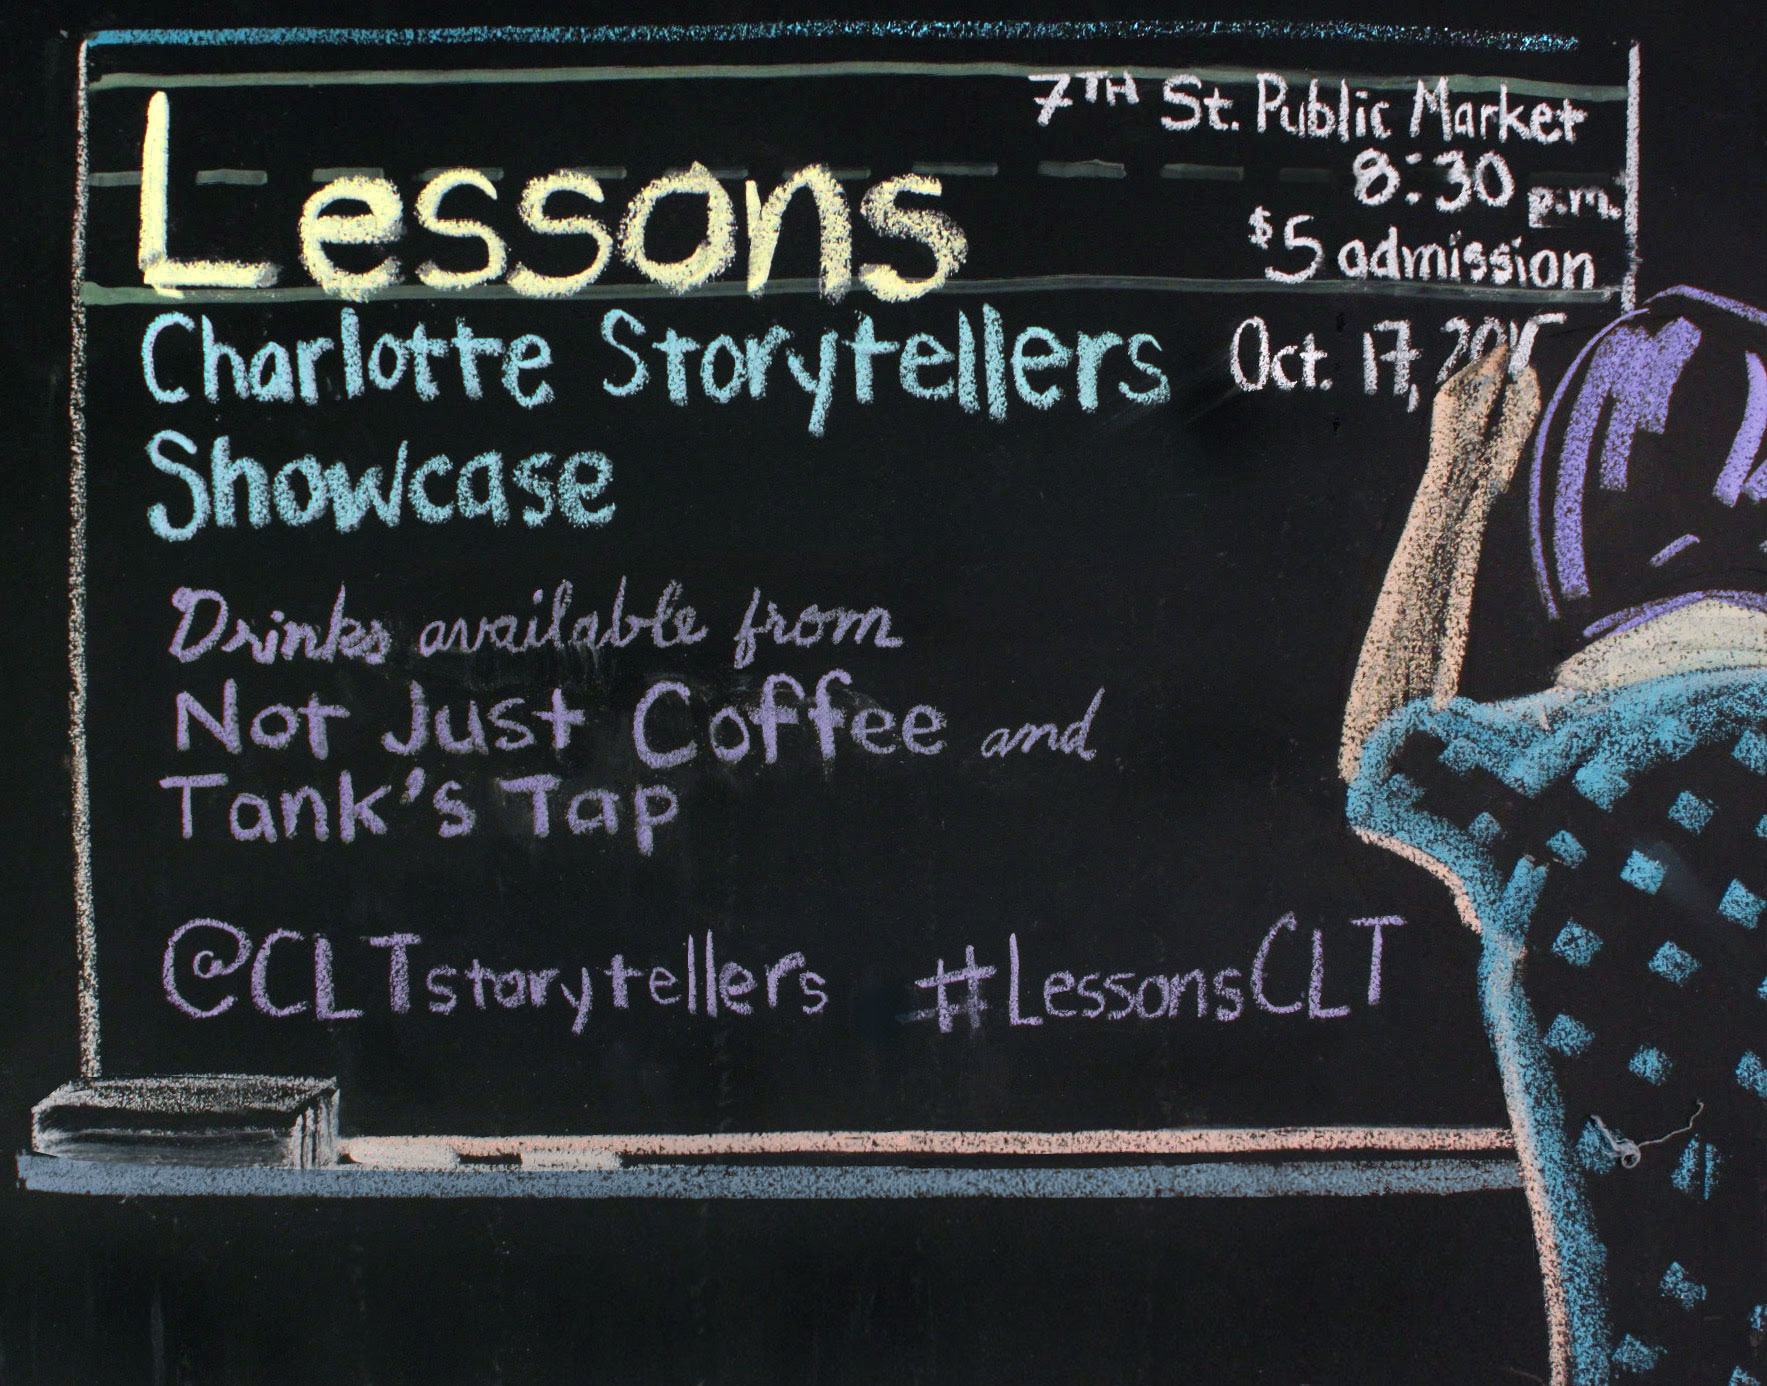 7TH St. Public Market
8:30 p.m.
$5 admission
Lessons
Charlotte Storytellers
Showcase
Oct. 17, 2015
Drinks available from
Not Just Coffee and
Tank's Tap
@CLTstorytellers #LessonsCLT